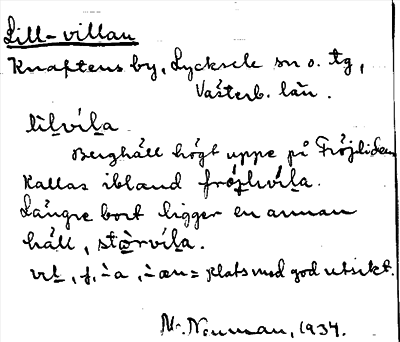 Lill-villan
Knaftens by, Lycksele sn o. tg,
Västerb. län.
lìlví̀la
Berghäll högt uppe på Fröjliden
Kallas ibland
Längre bort ligger en annan
häll, stòrví̀la.
f, = plats med god utsikt.
M. Norman, 1934.